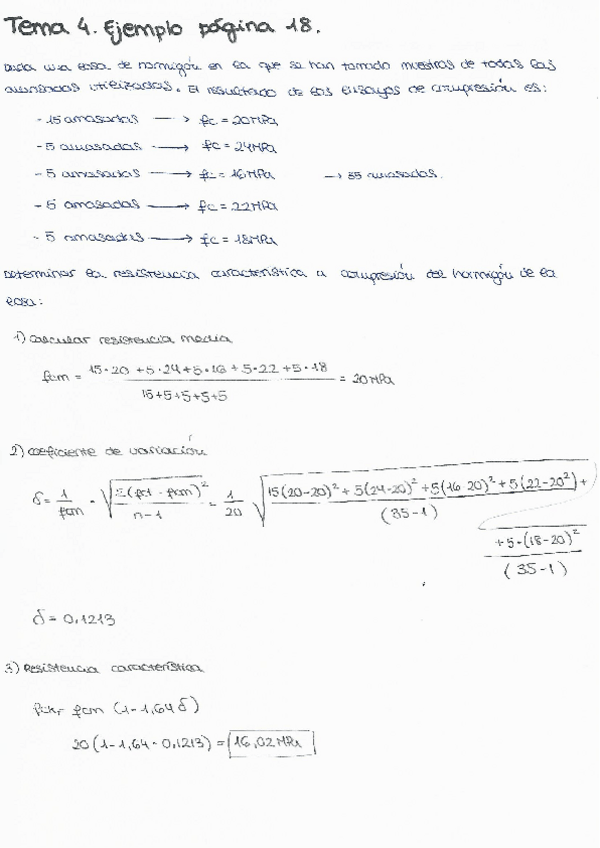 Tema 4. Ejemplo página 18.
Dada una losa de hormigón en la que se han tomado muestras de todas las
amasadas utilizadas. El resultado de los ensayos de compresión es:
- 15 amasadas → fc = 20MPa
- 5 amasadas → fc = 24MPa
- 5 amasadas → fc = 16MPa → 35 amasadas.
- 5 amasadas → fc = 22MPa
- 5 amasadas → fc = 18MPa
Determinar la resistencia característica a compresión del hormigón de la
losa:
1) calcular resistencia media
fcm = 15·20 + 5·24 + 5·16 + 5·22 + 5·18 / 15+5+5+5+5 = 20 MPa
2) coeficiente de variación
δ = 1/fcm · √(Σ(fci - fcm)² / n-1) = 1/20 √(15(20-20)² + 5(24-20)² + 5(16-20)² + 5(22-20²) +
+ 5·(18-20)² / (35-1)
(35-1)
δ = 0,1213
3) Resistencia característica
fck, fcm (1-1,64δ)
20(1-1,64·0,1213) = 16,02 MPa